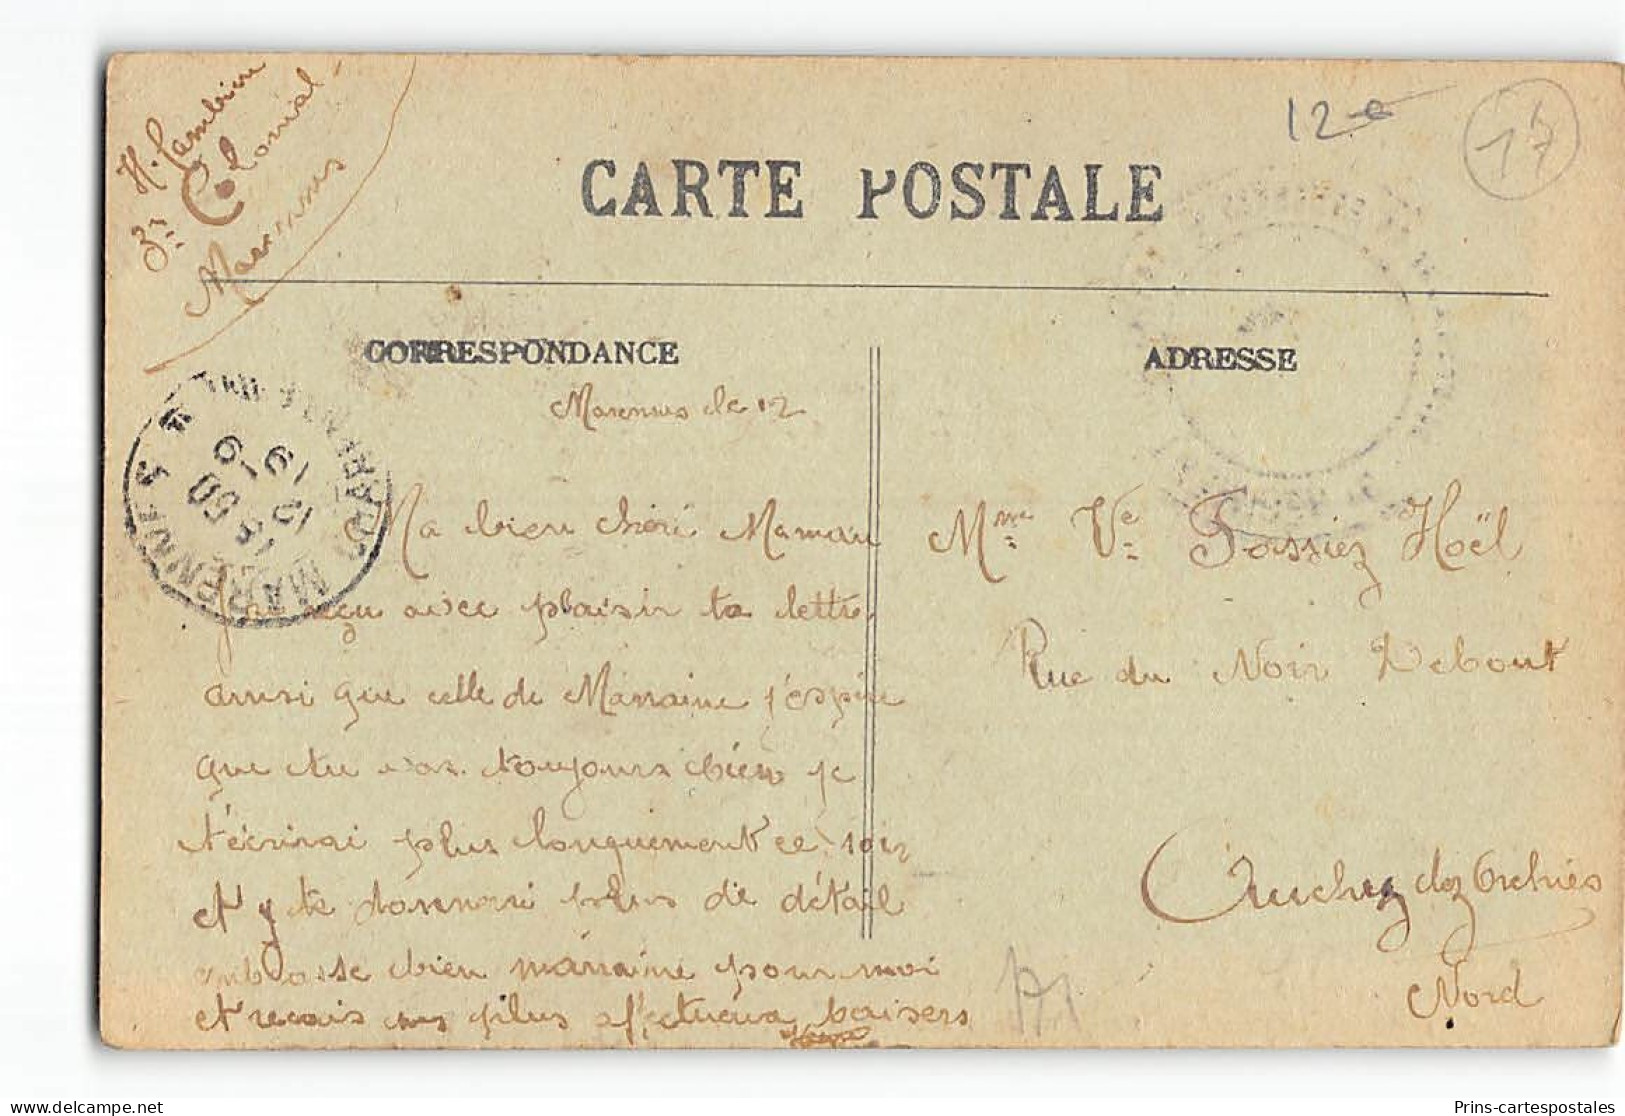 H. Lambien
3e Colonial
Marennes
12e
17
CARTE POSTALE
CORRESPONDANCE
ADRESSE
MARENNES
Marennes le 12
Ma bien chéri Maman
J'ai reçu avec plaisir ta lettre
ainsi que celle de Marraine j'espère
que tu vas toujours bien je
t'écrirai plus longuement ce soir
et y te donnerai plus de détail
embrasse bien marraine pour moi
et recois mes plus affectueux baisers
Mme Ve Hoël
Rue du Noir Debout
Auchez dez Orchies
Nord
Prins-cartespostales
delcampe.net